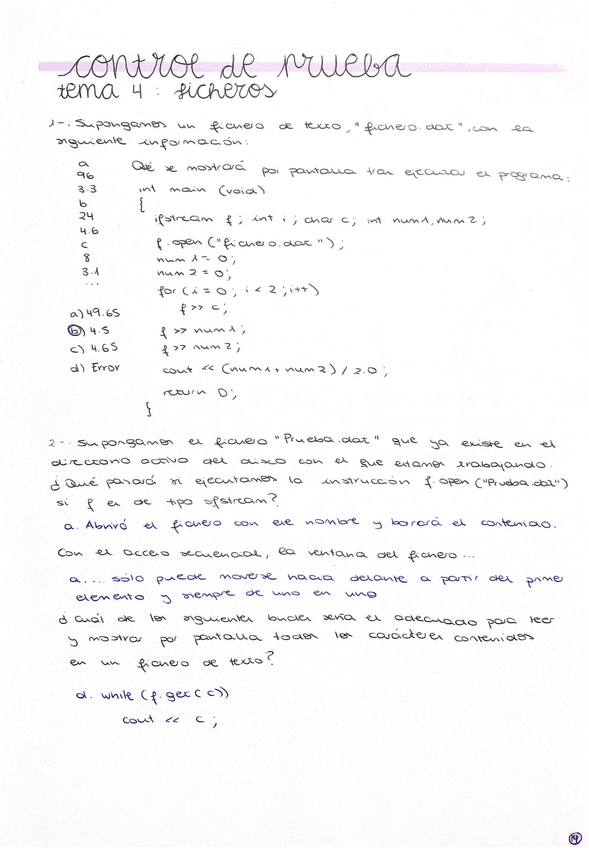 control de prueba
tema 4 : ficheros
1-. Supongamos un fichero de texto, "fichero.dat", con la
siguiente información:
a
96
3.3
b
24
4.6
c
8
3.1
...
Qué se mostrará por pantalla tras ejecutar el programa:
int main (void)
{
ifstream f; int i; char c; int num1, num2;
f.open ("fichero.dat");
num 1 = 0;
num 2 = 0;
for (i = 0; i < 2; i++)
f >> c;
f >> num1;
f >> num2;
cout << (num1 + num2) / 2.0;
return 0;
}
a) 49.65
b) 4.5
c) 4.65
d) Error
2-. Supongamos el fichero "Prueba.dat" que ya existe en el
directorio activo del disco con el que estamos trabajando.
¿Qué pasará si ejecutamos la instrucción f.open ("Prueba.dat")
si f es de tipo ofstream?
a. Abrirá el fichero con ese nombre y borrará el contenido.
Con el acceso secuencial, la ventana del fichero...
a. ... sólo puede moverse hacia delante a partir del primer
elemento y siempre de uno en uno
¿Cuál de los siguientes bucles sería el adecuado para leer
y mostrar por pantalla todos los carácteres contenidos
en un fichero de texto?
d. while (f.get(c))
cout << c;
14